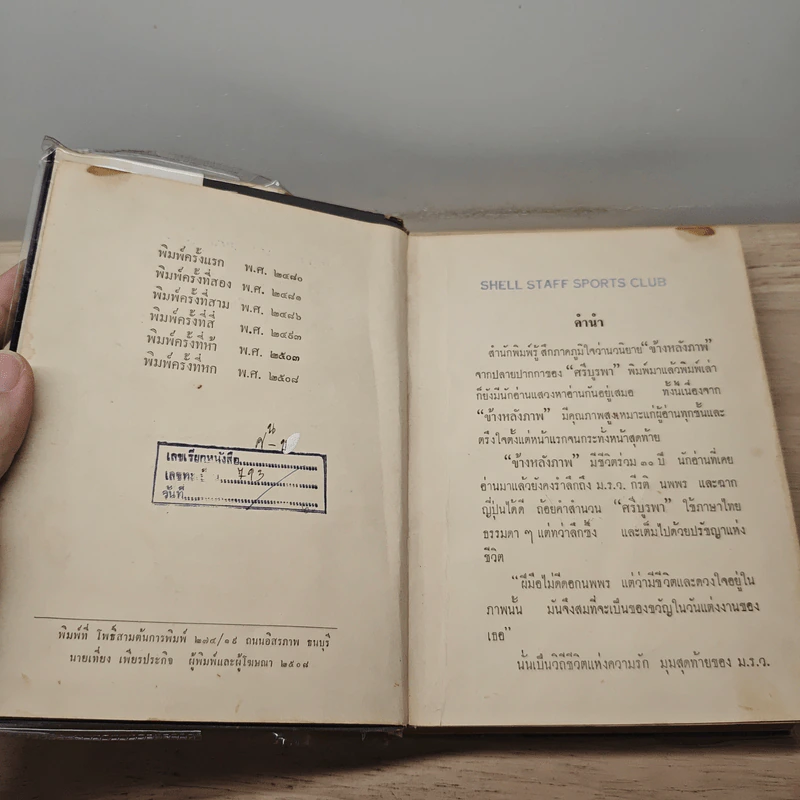 พิมพ์ครั้งแรก พ.ศ. ๒๔๘๐
พิมพ์ครั้งที่สอง พ.ศ. ๒๔๘๑
พิมพ์ครั้งที่สาม พ.ศ. ๒๔๘๖
พิมพ์ครั้งที่สี่ พ.ศ. ๒๔๙๓
พิมพ์ครั้งที่ห้า พ.ศ. ๒๕๐๓
พิมพ์ครั้งที่หก พ.ศ. ๒๕๐๘
เลขเรียกหนังสือ
เลขทะ ๗๙๓
วันที่
พิมพ์ที่ โพธิ์สามต้นการพิมพ์ ๒๗๔/๑๙ ถนนอิสรภาพ ธนบุรี
นายเที่ยง เพียรประกิจ ผู้พิมพ์และผู้โฆษณา ๒๕๐๘
SHELL STAFF SPORTS CLUB
คำนำ
สำนักพิมพ์รู้สึกภาคภูมิใจว่านวนิยาย "ข้างหลังภาพ"
จากปลายปากกาของ "ศรีบูรพา" พิมพ์มาแล้วพิมพ์เล่า
ก็ยังมีนักอ่านแสวงหาอ่านกันอยู่เสมอ ทั้งนี้เนื่องจาก
"ข้างหลังภาพ" มีคุณภาพสูงเหมาะแก่ผู้อ่านทุกชั้นและ
ตรึงใจตั้งแต่หน้าแรกจนกระทั่งหน้าสุดท้าย
"ข้างหลังภาพ" มีชีวิตร่วม ๓๐ ปี นักอ่านที่เคย
อ่านมาแล้วยังคงรำลึกถึง ม.ร.ว. กีรติ นพพร และฉาก
ญี่ปุ่นได้ดี ถ้อยคำสำนวน "ศรีบูรพา" ใช้ภาษาไทย
ธรรมดา ๆ แต่ทว่าลึกซึ้ง และเต็มไปด้วยปรัชญาแห่ง
ชีวิต
"ฝีมือไม่ดีดอกนพพร แต่ว่ามีชีวิตและดวงใจอยู่ใน
ภาพนั้น มันจึงสมที่จะเป็นของขวัญในวันแต่งงานของ
เธอ"
นั่นเป็นวิถีชีวิตแห่งความรัก มุมสุดท้ายของ ม.ร.ว.